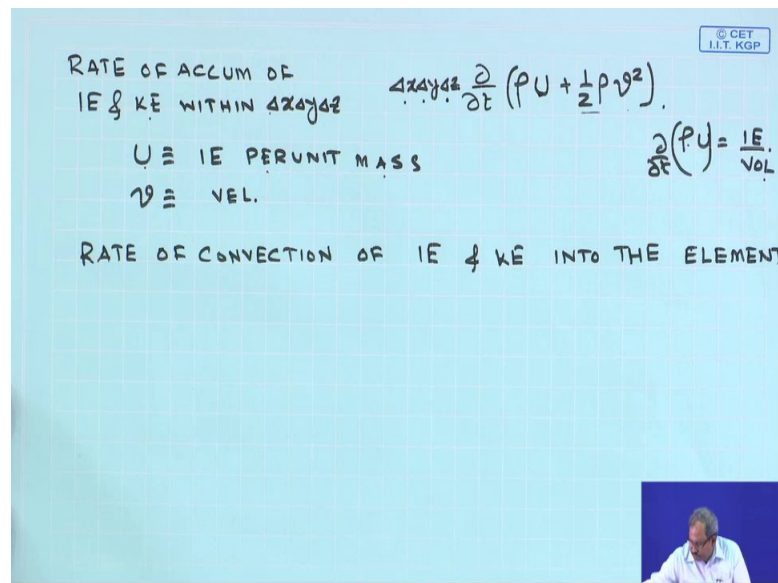 © CET
I.I.T. KGP
RATE OF ACCUM OF
IE & KE WITHIN ΔxΔyΔz
ΔxΔyΔz ∂/∂t (ρU + 1/2 ρv²).
∂/∂t (ρU) = IE/VOL.
U ≡ IE PER UNIT MASS
v ≡ VEL.
RATE OF CONVECTION OF IE & KE INTO THE ELEMENT